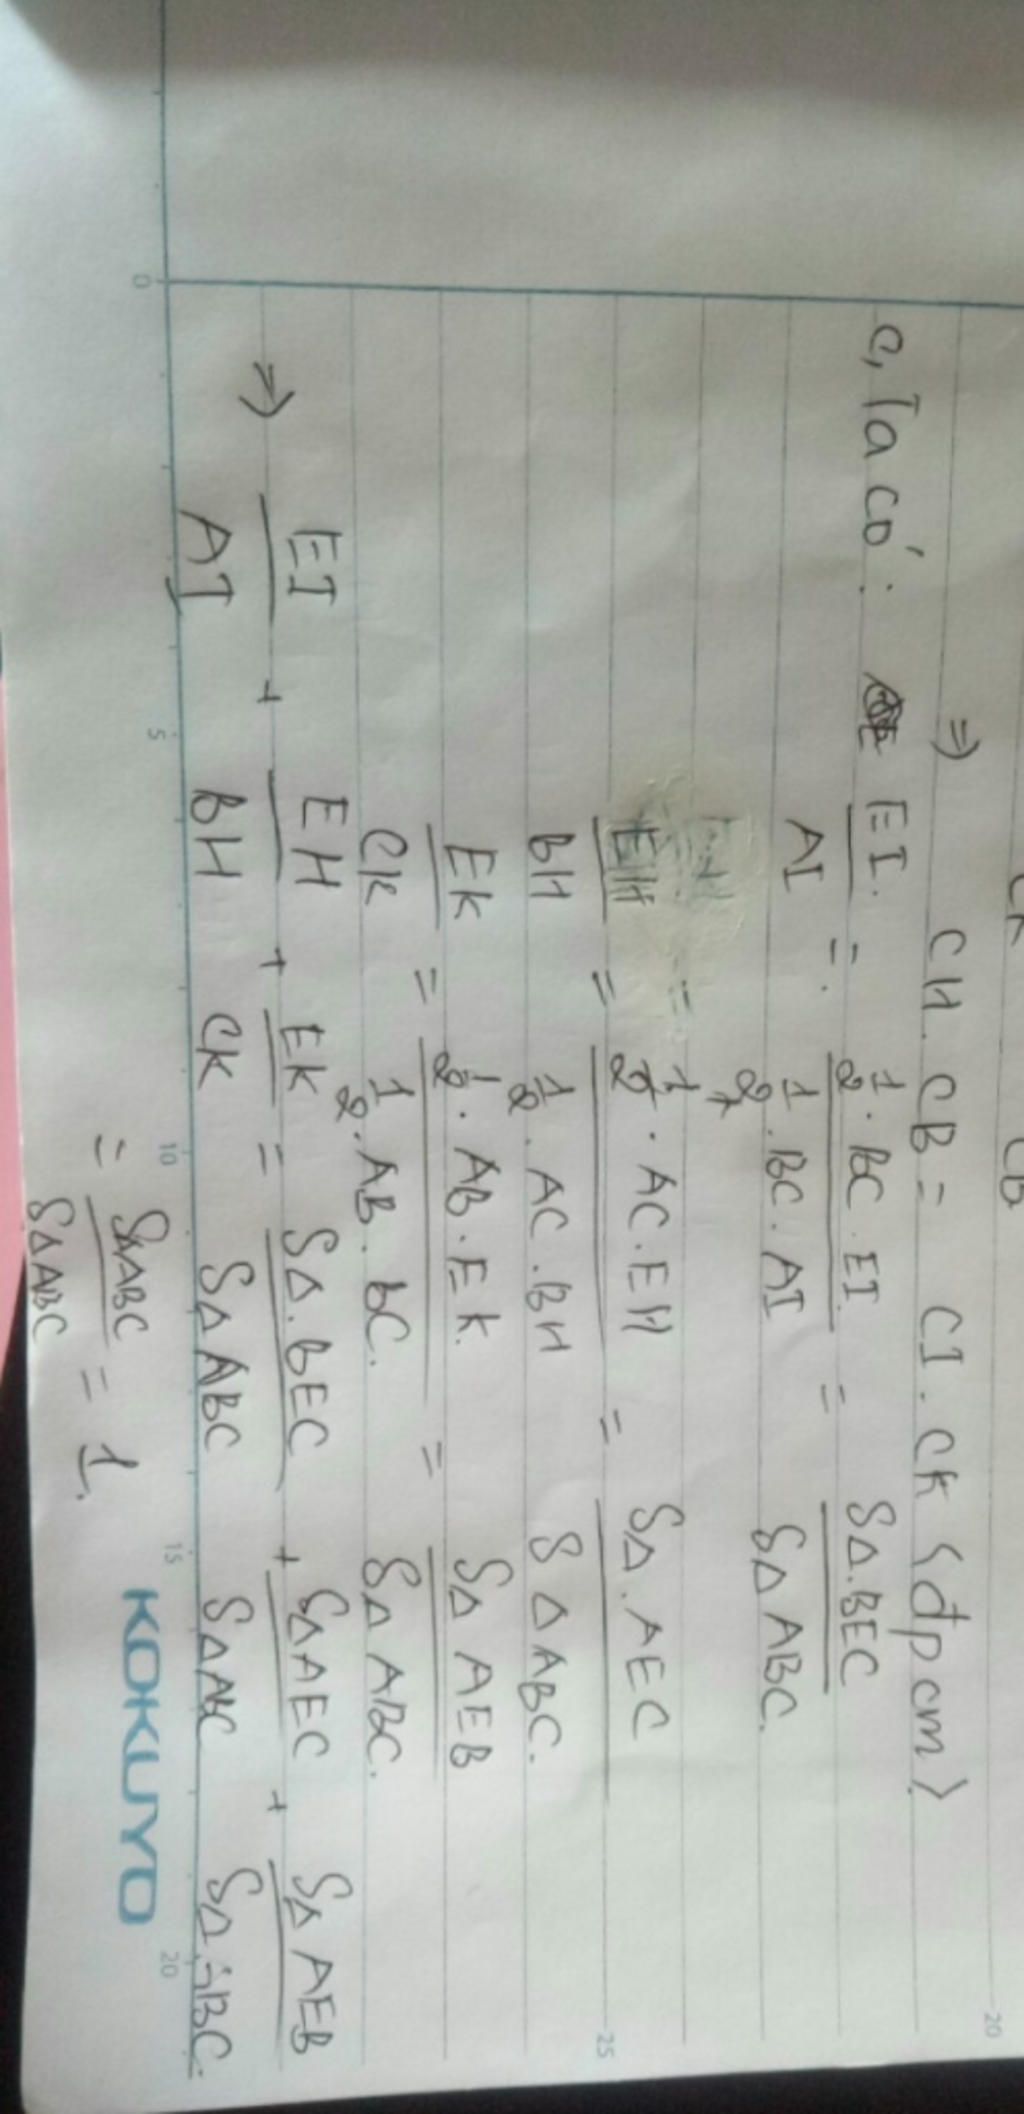 CK CB
⇒ CH . CB = CI . CK (dpcm)
c, Ta có : EI. / AI = 1/2 . BC . EI / 1/2 . BC . AI = SΔ.BEC / SΔABC.
EH / BH = 1/2 . AC . EH / 1/2 . AC . BH = SΔ.AEC / SΔABC.
EK / CK = 1/2 . AB . EK. / 1/2 . AB . bC. = SΔAEB / SΔABC.
⇒ EI / AI + EH / BH + EK / CK = SΔ.BEC / SΔABC + SΔAEC / SΔABC + SΔAEB / SΔABC.
= SΔABC / SΔABC = 1.
0 5 10 15 20
20
25
KOKUYO